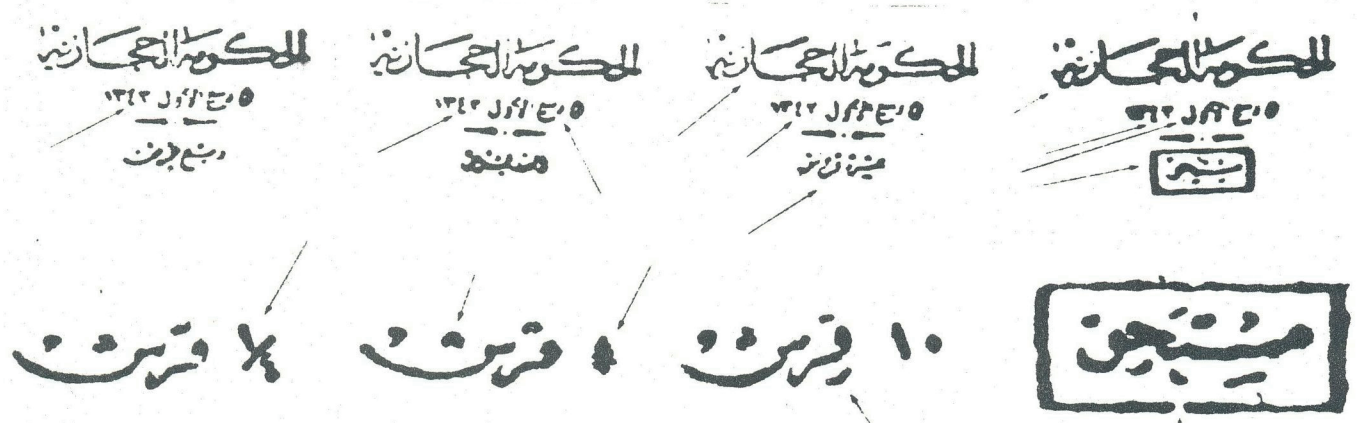 الحكومة الحجازية
٥ ربيع الاول ١٣٤٣
الحكومة الحجازية
٥ ربيع الاول ١٣٤٣
عشرة قروش
الحكومة الحجازية
٥ ربيع الاول ١٣٤٣
الحكومة الحجازية
٥ ربيع الاول ١٣٤٣
ربع قرش
مستحق
١٠ قرش
قرش
١/٤ قرش